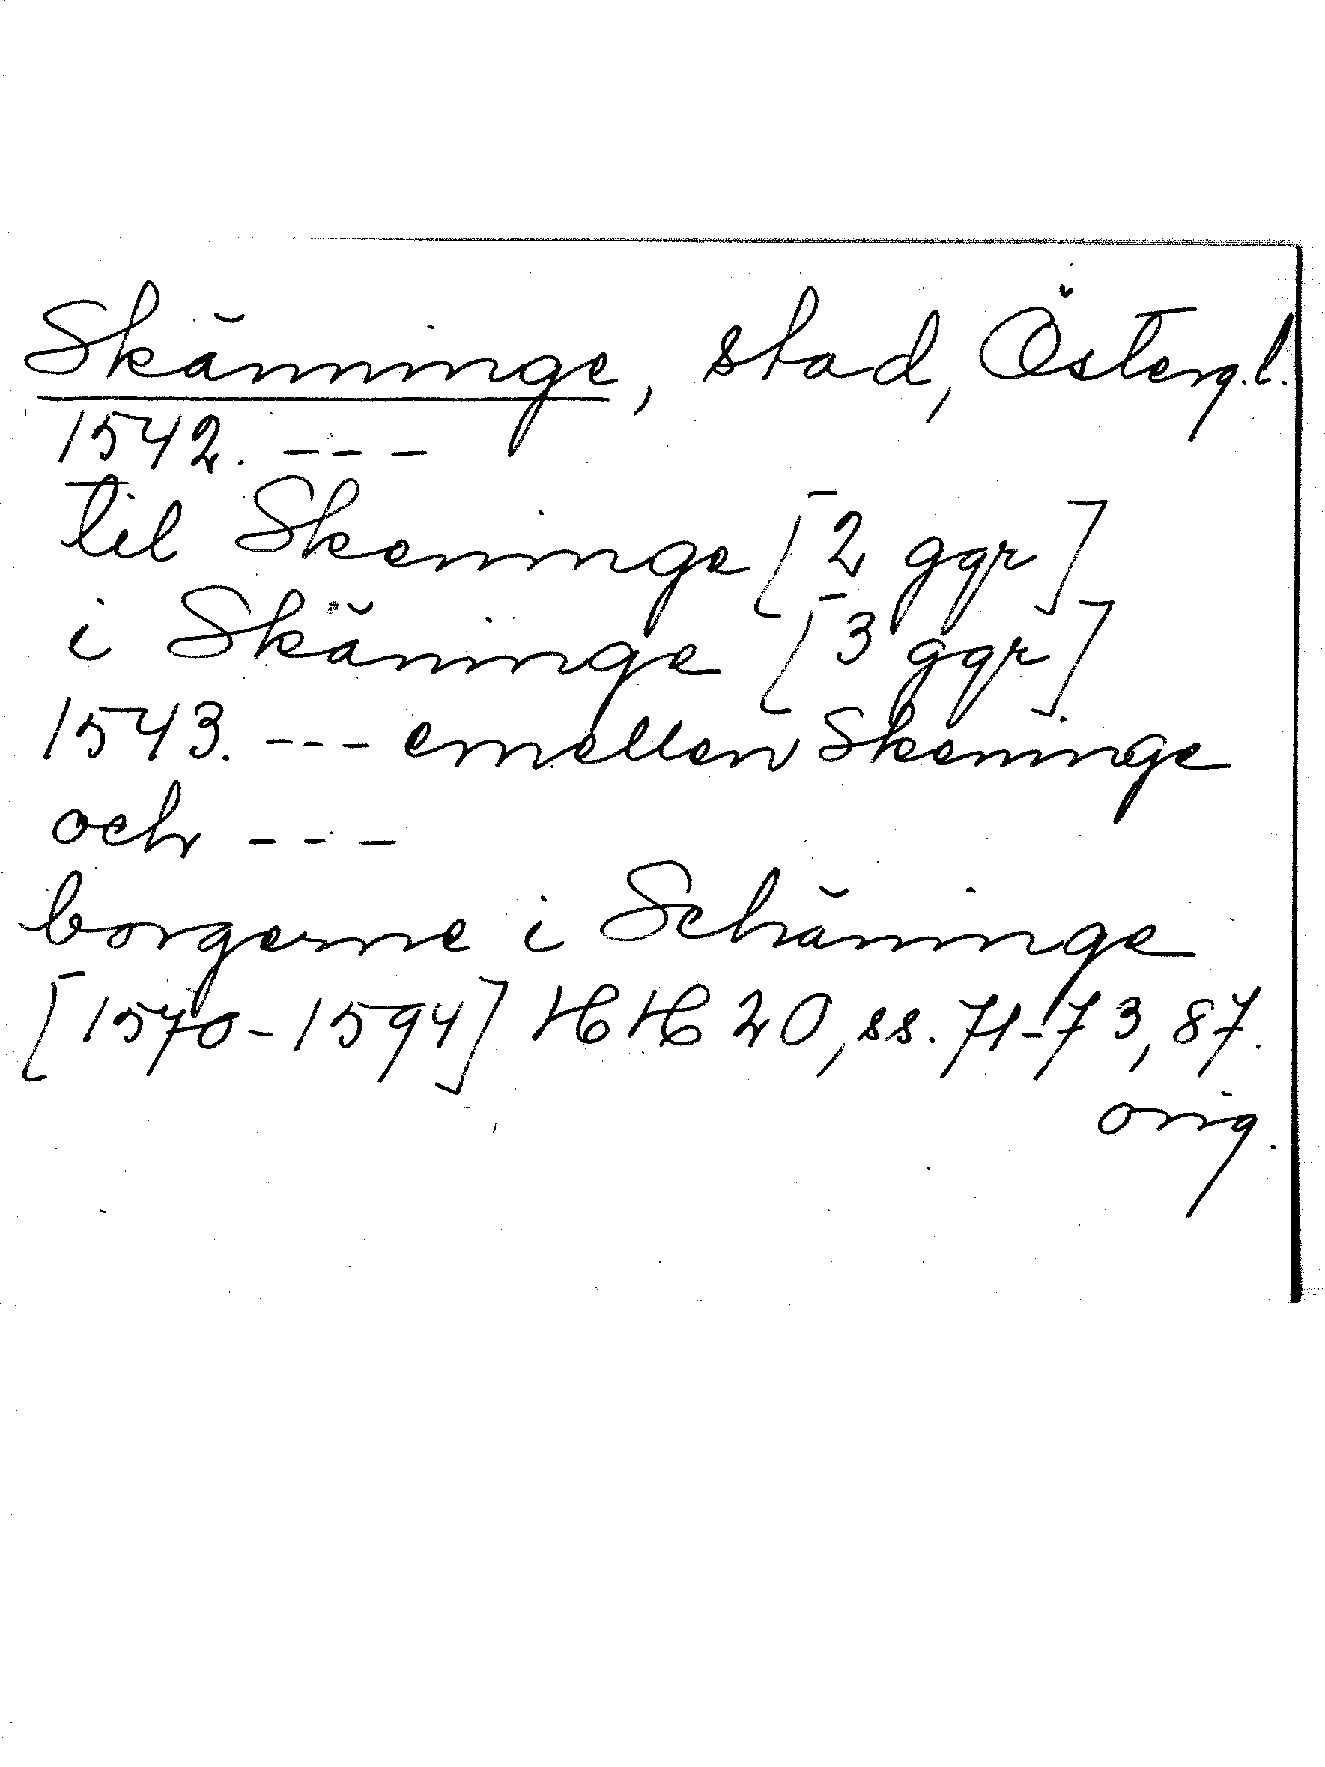 Skänninge, stad, Östergl.
1542. ---
til Skeninge [2 ggr]
i Skäninge [3 ggr]
1543. --- emellen Skeninge
och ---
borgerne i Schäninge
[1570-1594] HH 20, ss. 71-73, 87.
orig.